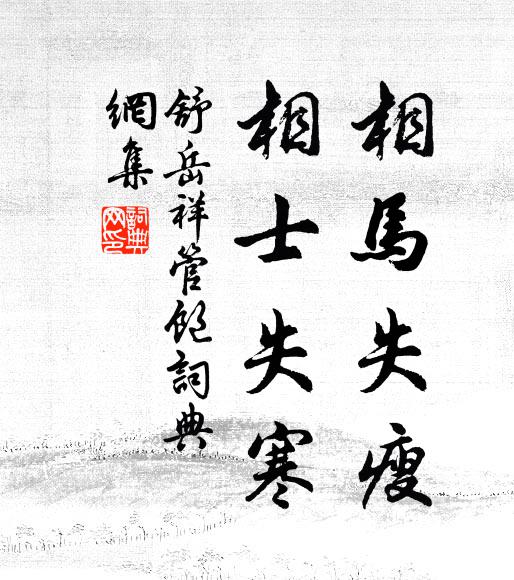 相馬失瘦
相士失寒
舒岳祥管飽詞典
網集
詞典網印